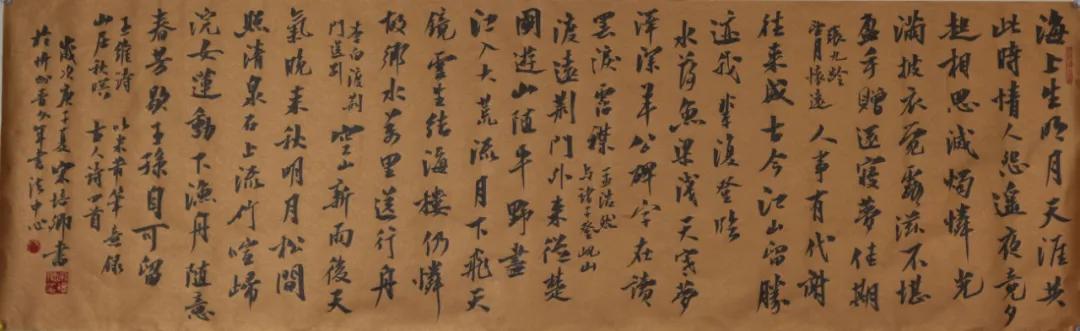 海上生明月天涯共
此時情人怨遙夜竟夕
起相思滅燭憐光
滿披衣覺露滋不堪
盈手贈還寢夢佳期
張九齡
望月懷遠
人事有代謝
往來成古今江山留勝
迹我輩復登臨
水落魚梁淺天寒夢
澤深羊公碑字在讀
罷淚霑襟
孟浩然
與諸子登峴山
渡遠荊門外來從楚
國遊山隨平野盡
江入大荒流月下飛天
鏡雲生結海樓仍憐
故鄉水萬里送行舟
李白渡荊
門送別
空山新雨後天
氣晚來秋明月松間
照清泉石上流竹喧歸
浣女蓮動下漁舟隨意
春芳歇王孫自可留
王維詩 以米芾筆意録
山居秋暝 古人詩四首
歲次庚子夏宋培 書
於忻州青少年書法中心